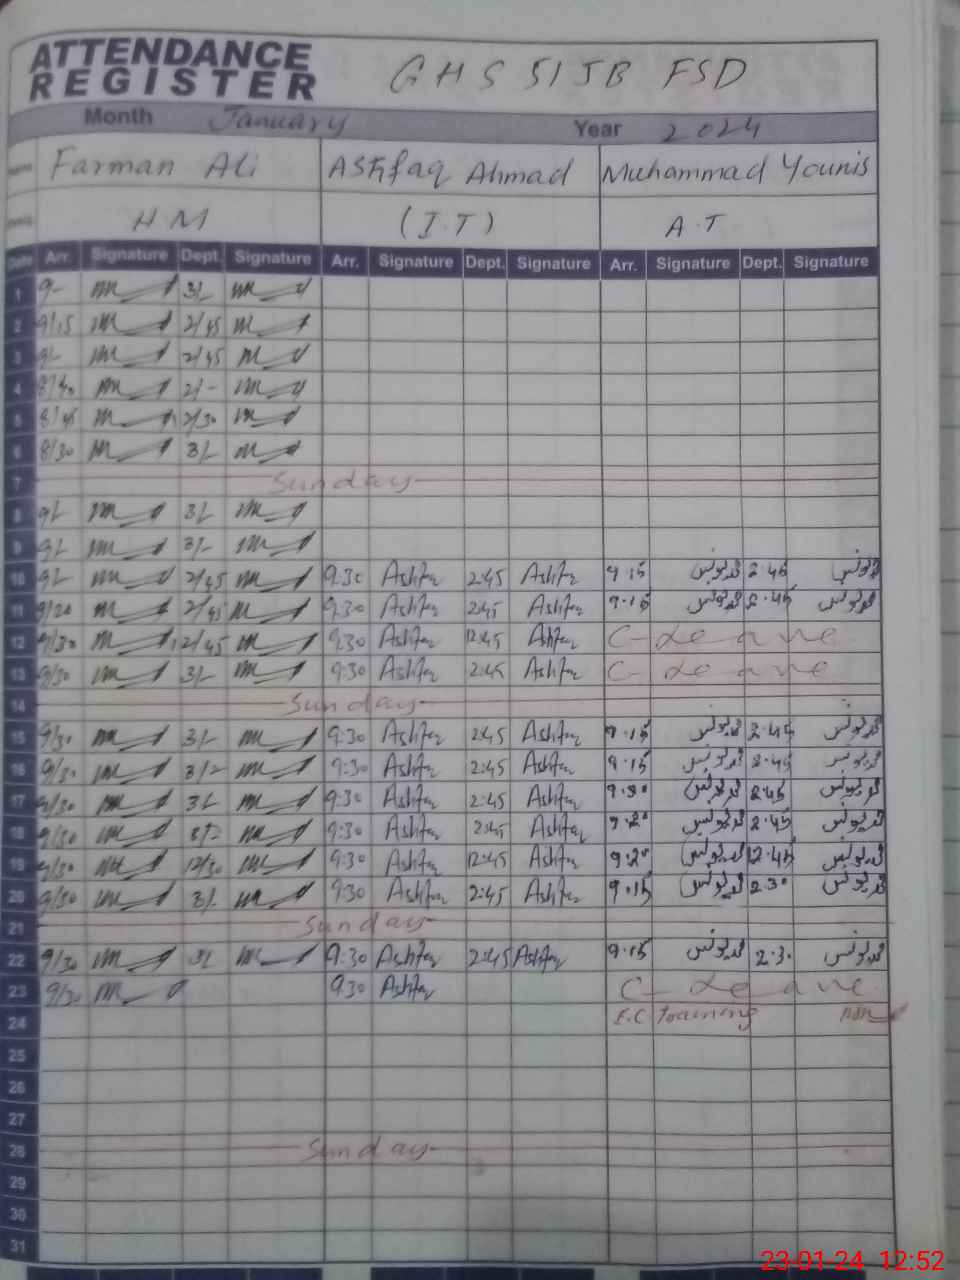 ATTENDANCE
REGISTER
GHS 51JB FSD
Month January Year 2024
Farman Ali Ashfaq Ahmad Muhammad Younis
HM (I.T) A.T
Date Arr. Signature Dept. Signature Arr. Signature Dept. Signature Arr. Signature Dept. Signature
1 9- 3/-
2 9/15 2/45
3 9/- 2/45
4 8/40 2/-
5 8/45 12/30
6 8/30 3/-
7 Sunday
8 9/- 3/-
9 9/- 3/-
10 9/- 2/45 9.30 Ashfaq 2:45 Ashfaq 9.15 محمد یونس 2.45 محمد یونس
11 9/20 2/45 9.30 Ashfaq 2:45 Ashfaq 9.15 محمد یونس 2.45 محمد یونس
12 9/30 12/45 9.30 Ashfaq 12:45 Ashfaq C-Leave
13 9/30 3/- 9:30 Ashfaq 2:45 Ashfaq C-Leave
14 Sunday
15 9/30 3/- 9:30 Ashfaq 2:45 Ashfaq 9.15 محمد یونس 2.45 محمد یونس
16 9/30 3/- 9:30 Ashfaq 2:45 Ashfaq 9.15 محمد یونس 2.45 محمد یونس
17 9/30 3/- 9:30 Ashfaq 2:45 Ashfaq 9.30 محمد یونس 2.45 محمد یونس
18 9/30 9:30 Ashfaq 2:45 Ashfaq 9.20 محمد یونس 2.45 محمد یونس
19 9/30 12/30 9:30 Ashfaq 12:45 Ashfaq 9.20 محمد یونس 12.45 محمد یونس
20 9/30 3/- 9:30 Ashfaq 2:45 Ashfaq 9.15 محمد یونس 2.30 محمد یونس
21 Sunday
22 9/30 3/- 9:30 Ashfaq 2:45 Ashfaq 9.15 محمد یونس 2.30 محمد یونس
23 9/30 9.30 Ashfaq C-Leave
24 Training
25
26
27
28 Sunday
29
30
31
23-01-24 12:52